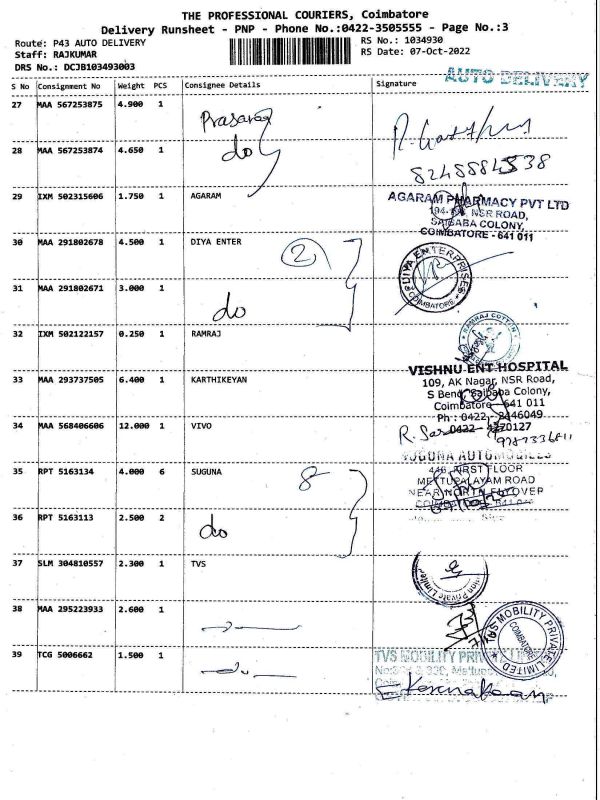 THE PROFESSIONAL COURIERS, Coimbatore
Delivery Runsheet - PNP - Phone No.:0422-3505555 - Page No.:3
Route: P43 AUTO DELIVERY
Staff: RAJKUMAR
DRS No.: DCJB103493003
RS No.: 1034930
RS Date: 07-Oct-2022
AUTO DELIVERY
S No Consignment No Weight PCS Consignee Details Signature
27 MAA 567253875 4.900 1
28 MAA 567253874 4.650 1 do
8245884538
29 IXM 502315606 1.750 1 AGARAM
AGARAM PHARMACY PVT LTD
NSR ROAD,
SAIBABA COLONY,
COIMBATORE - 641 011
30 MAA 291802678 4.500 1 DIYA ENTER 2
DIYA ENTERPRISES
COIMBATORE
31 MAA 291802671 3.000 1 do
32 IXM 502122157 0.250 1 RAMRAJ
RAMRAJ COTTON
33 MAA 293737505 6.400 1 KARTHIKEYAN
VISHNU ENT HOSPITAL
109, AK Nagar, NSR Road,
S Bend, Saibaba Colony,
Coimbatore - 641 011
Ph : 0422 - 2446049
0422 - 4270127
34 MAA 568406606 12.000 1 VIVO
35 RPT 5163134 4.000 6 SUGUNA 8
SUGUNA AUTOMOBILES
446, FIRST FLOOR
METTUPALAYAM ROAD
NEAR NORTH FLYOVER
36 RPT 5163113 2.500 2 do
37 SLM 304810557 2.300 1 TVS
Private Limited
38 MAA 295223933 2.600 1
TVS MOBILITY PRIVATE LIMITED
COIMBATORE
39 TCG 5006662 1.500 1
TVS MOBILITY PRIVATE